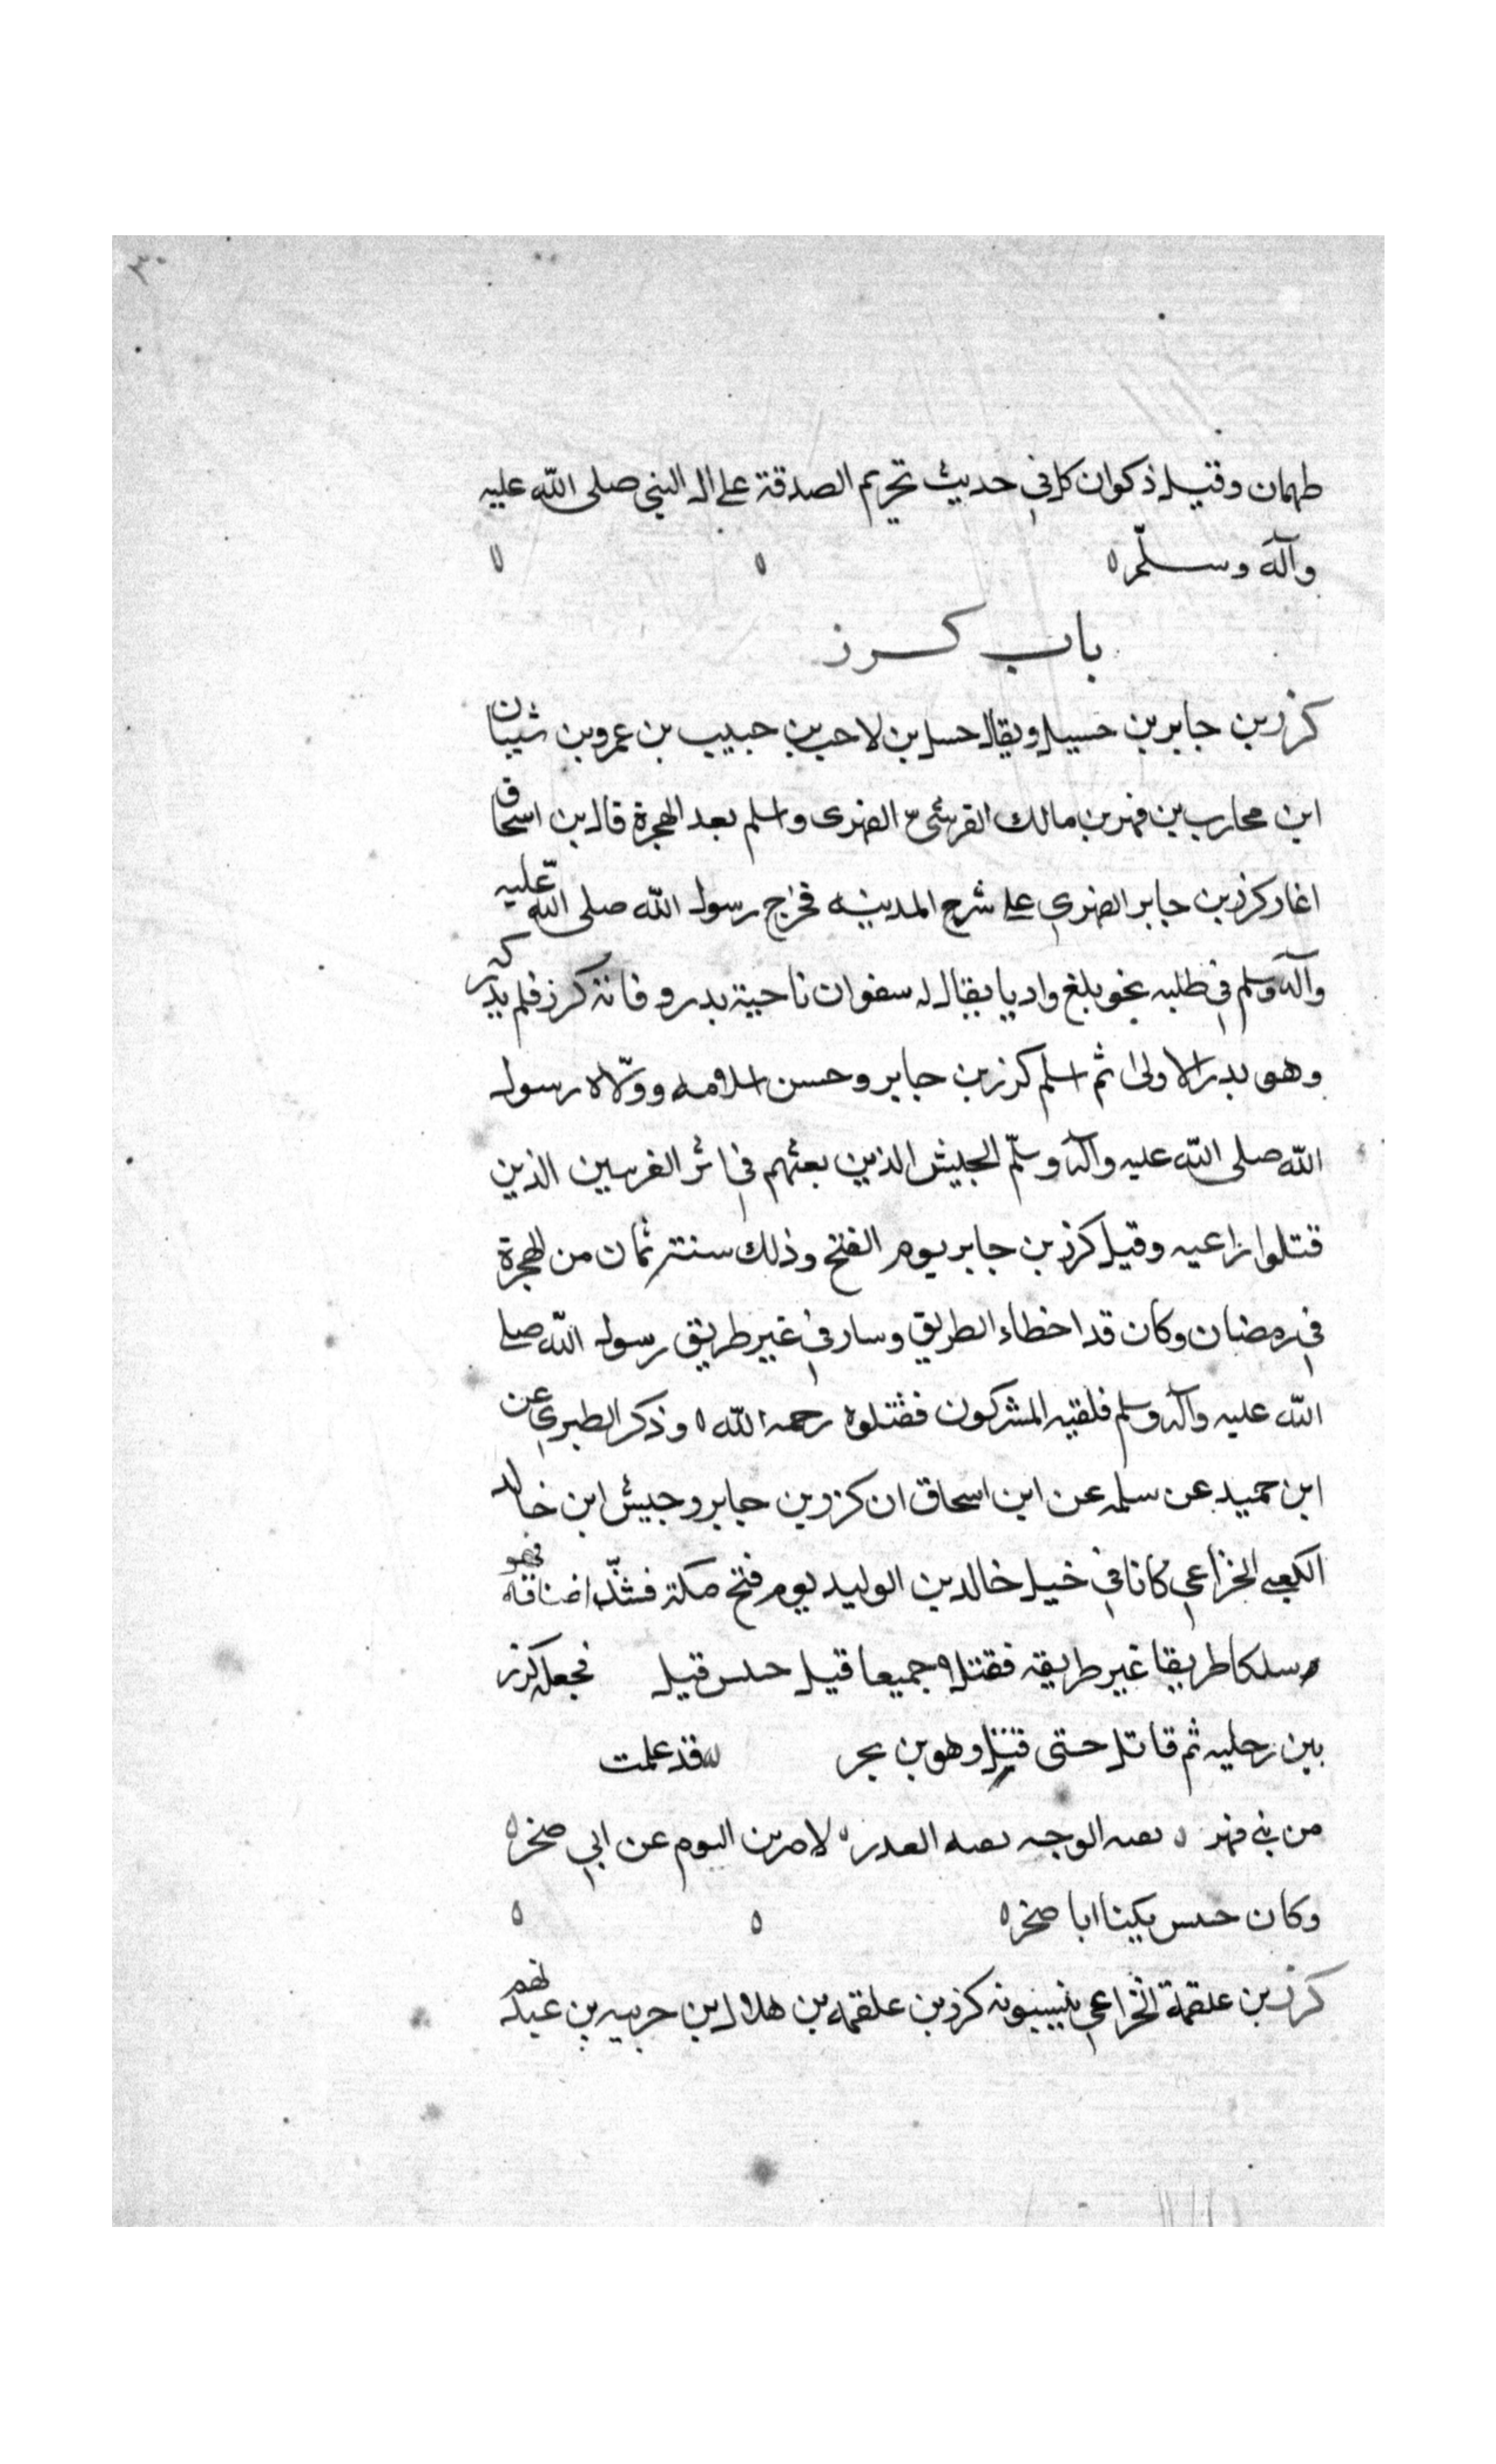 ٣٠
طهمان وقيل ذكوان كل في حديث تحريم الصدقة على ال النبي صلى الله عليه
وآله وسلم ه ه ه
باب كرز
كرز بن جابر بن حسيل ويقال حسل بن لاحب بن حبيب بن عمرو بن شيبان
ابن محارب بن فهر بن مالك القرشي الفهرى واسلم بعد الهجرة قال بن اسحاق
اغار كرز بن جابر الفهري على شرح المدينه فخرج رسول الله صلى الله عليه
وآله وسلم في طلبه نحو بلغ واديا يقال له سفوان ناحية بدر وفاته كرز فلم يدركه
وهو بدر الاولى ثم اسلم كرز بن جابر وحسن اسلامه وولاه رسول
الله صلى الله عليه وآله وسلم الجيش الذين بعثهم في اثر الذين
قتلوا راعيه وقيل كرز بن جابر يوم الفتح وذلك سنة ثمان من الهجرة
في رمضان وكان قد اخطاء الطريق وسار في غير طريق رسول الله صلى
الله عليه وآله وسلم فلقيه المشركون فقتلوه رحمه الله ه وذكر الطبري عن
ابن حميد عن سلمه عن ابن اسحاق ان كرز بن جابر وحبيش ابن خالد
الكعبي الخزاعي كانا في خيل خالد بن الوليد يوم فتح مكة
وسلكا طريقا غير طريقه فقتلا جميعا قيل حبس قيل فجعل كرز
بين رجليه ثم قاتل حتى قتل وهو قد علمت
من بني فهر ه الوجه ه لاضربن اليوم عن ابي صخر ه
وكان يكينا ابا صخر ه ه ه
كرز بن علقمة الخزاعي ينسبونه كرز بن علقمه بن هلال بن حريبه بن عبد نهم